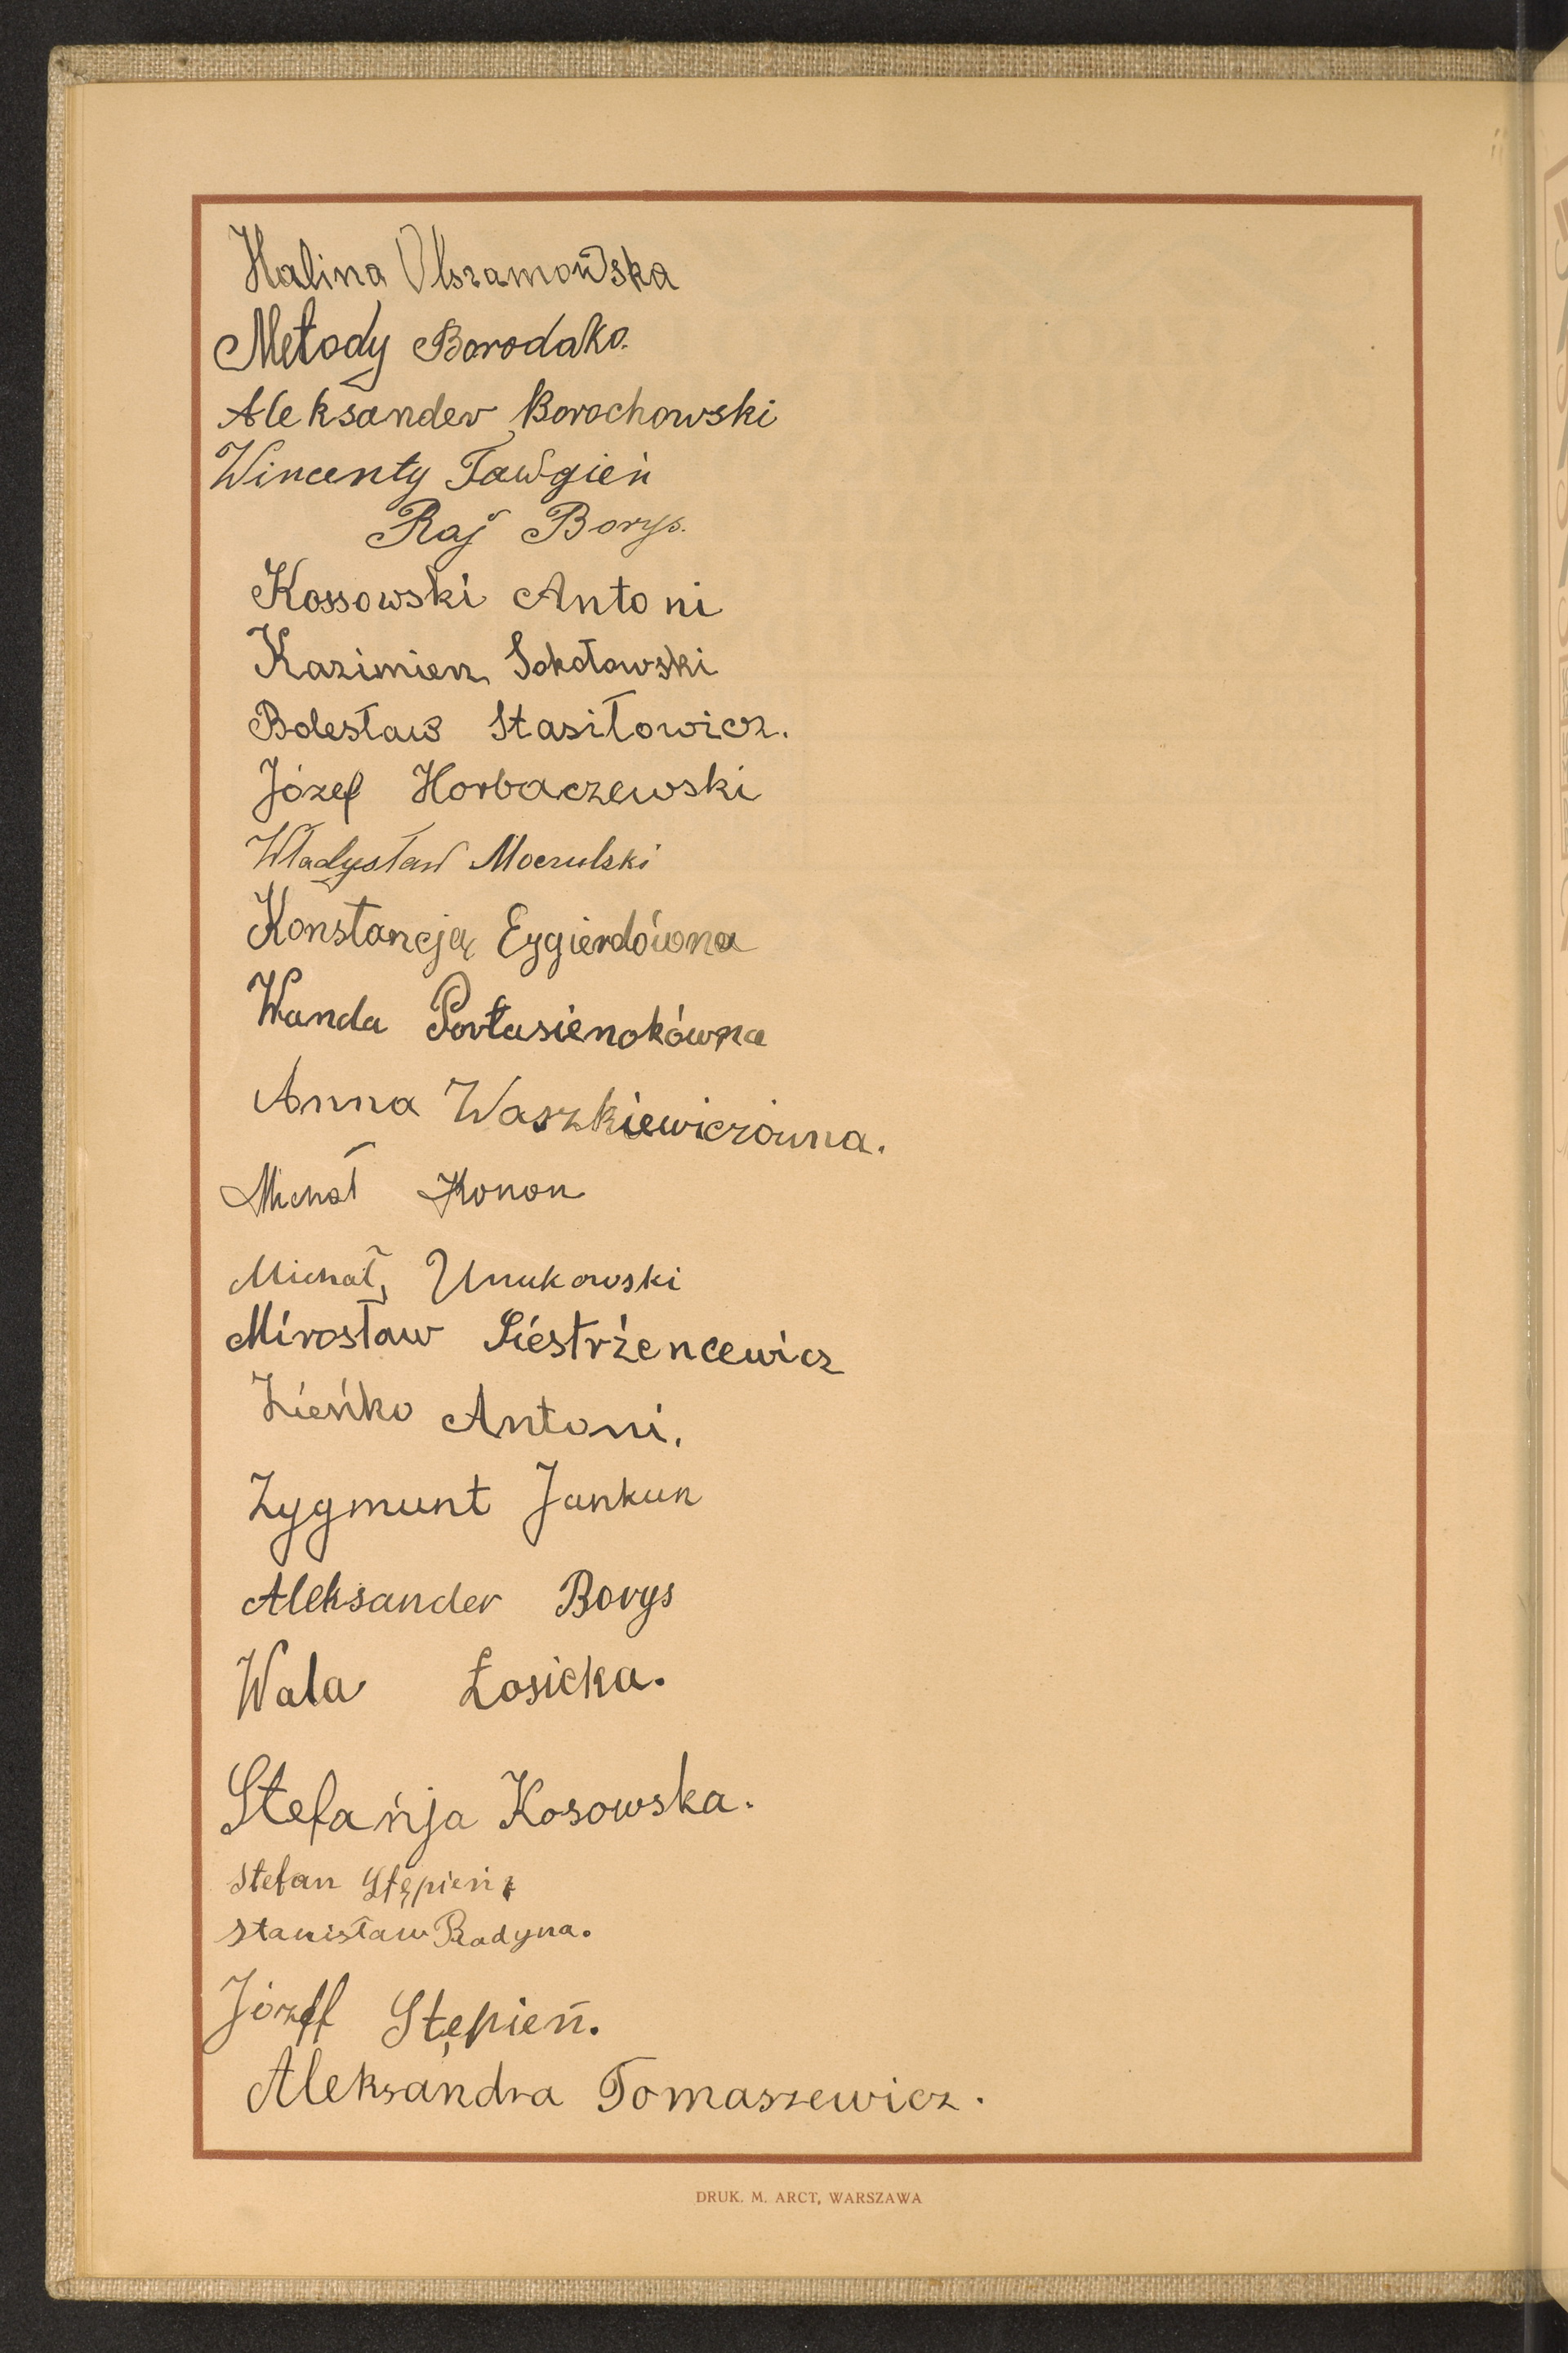 Halina Olszamowska
Metody Borodako.
Aleksander Borochowski
Wincenty Tawgień
Raj Borys.
Kossowski Antoni
Kazimierz Sokołowski
Bolesław Stasiłowicz.
Józef Horbaczewski
Władysław Moczulski
Konstancja Eygierdówna
Wanda Portasienokówna
Anna Waszkiewiczówna.
Michał Konon
Michał Unukowski
Mirosław Siestrzencewicz
Zieńko Antoni.
Zygmunt Jankun
Aleksander Borys
Wala Łosicka.
Stefańja Kosowska.
Stefan Stępień
Stanisław Radyna.
Józeff Stępień.
Aleksandra Tomaszewicz.
DRUK. M. ARCT, WARSZAWA